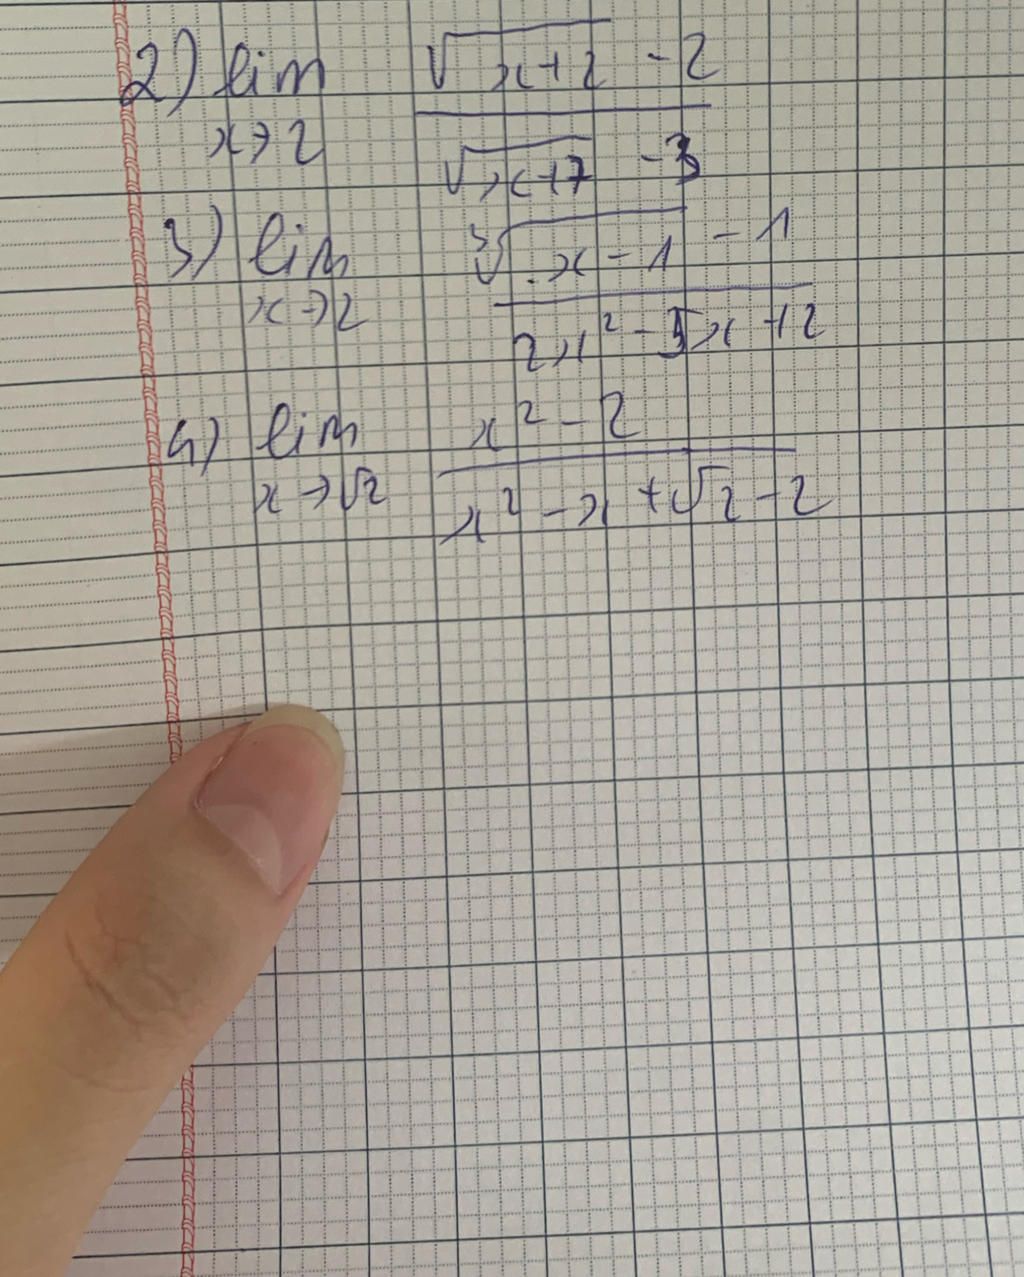 2) lim √(x+2) - 2
x→2 √(x+7) - 3
3) lim ∛(x-1) - 1
x→2 2x² - 5x + 2
4) lim x² - 2
x→√2 x² - x + √2 - 2